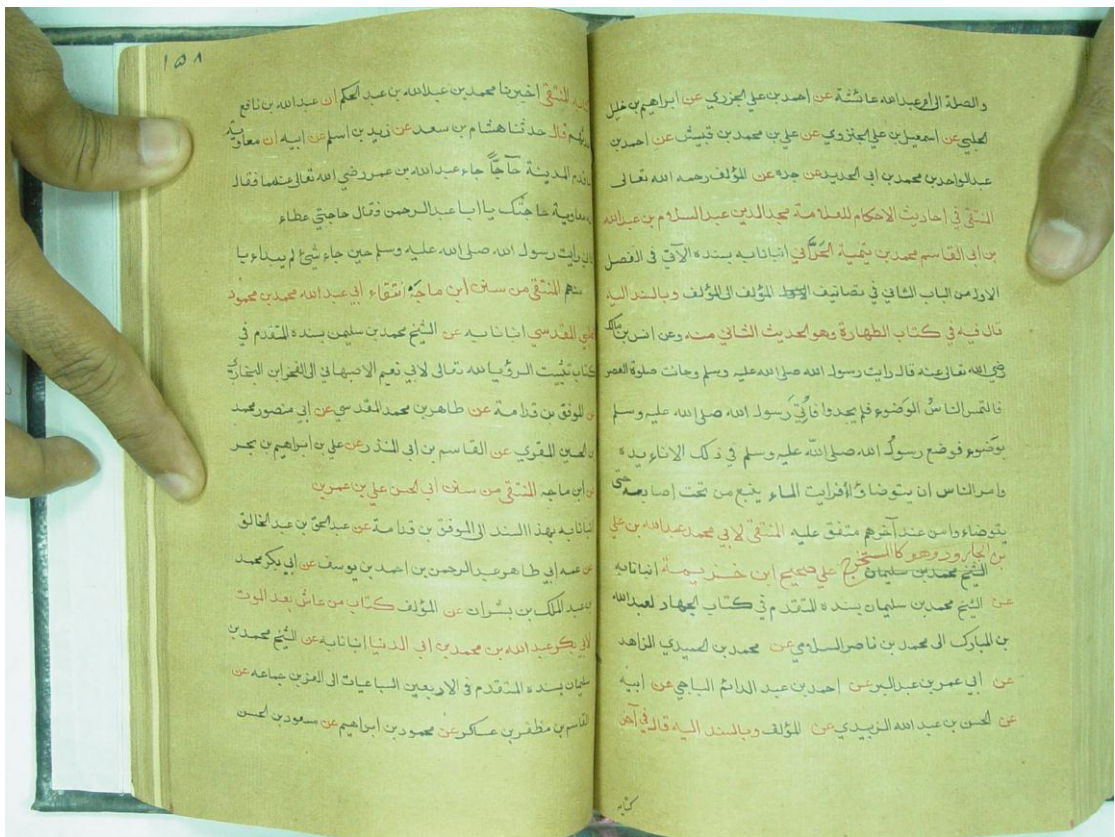 والصلة الى أم عبدالله عائشة عن احمد بن علي الجزري عن ابراهيم بن خليل
الحلبي عن اسمعيل بن علي الجنزوي عن علي بن محمد بن قبيس عن احمد بن
عبدالواحد بن محمد بن ابى الحديد عن جده عن المؤلف رحمه الله تعالى
المنتقى في احاديث الاحكام للعلامة مجدالدين عبدالسلام بن عبدالله
بن ابى القاسم محمد بن تيمية الحرّاني انبانا به بسنده الآتي فى الفصل
الاول من الباب الثاني في تصانيف المؤلف الى المؤلف وبالسند اليه
قال فيه في كتاب الطهارة وهو الحديث الثاني منه وعن انس بن مالك
رضي الله تعالى عنه قال رايت رسول الله صلى الله عليه وسلم وحانت صلوة العصر
فالتمس الناسُ الوَضوء فلم يجدوا فأُتِيَ رسول الله صلى الله عليه وسلم
بوَضوء فوضع رسولُ الله صلى الله عليه وسلم في ذلك الاناء يده
وامر الناس ان يتوضاؤا فرايت الماء ينبع من تحت اصابعه حتى
يتوضاء وا من عند آخرهم متفق عليه المنتقى لابي محمد عبدالله بن علي
بن الجارود وهو كالمستخرج على صحيح ابن خزيمة انبانا به
الشيخ محمد بن سليمان
عن الشيخ محمد بن سليمان بسنده المتقدم في كتاب الجهاد لعبدالله
بن المبارك الى محمد بن ناصر السلامي عن محمد بن الحميدي الزاهد
عن ابي عمر بن عبدالبر عن احمد بن عبد الدائم الباجي عن ابيه
عن الحسن بن عبد الله الزبيدي عن المؤلف وبالسند اليه قال في آخر
كتابه
١٥٨
كتابه المنتقى اخبرنا محمد بن عبدالله بن عبد الحكم أن عبدالله بن نافع
قال حدثنا هشام بن سعد عن زيد بن اسلم عن ابيه أن معاوية
قدم المدينة حاجًّا جاء عبدالله بن عمر رضي الله تعالى عنهما فقال
معاوية حاجتك يا ابا عبدالرحمن فقال حاجتي عطاء
رايت رسول الله صلى الله عليه وسلم حين جاء شئ لم يبداء با
منهم المنتقى من سنن ابن ماجه انتقاء ابي عبدالله محمد بن محمود
المقدسي انبانا به عن الشيخ محمد بن سليمن بسنده المتقدم في
كتاب تثبيت الرؤيا لله تعالى لابي نعيم الاصبهاني الى الفخر ابن البخاري
عن الموفق بن قدامة عن طاهر بن محمد المقدسي عن ابي منصور محمد
بن الحسين المقوي عن القاسم بن ابى المنذر عن علي بن ابراهيم بن بحر
عن ابن ماجه المنتقى من سنن ابي الحسن علي بن عمر بن
انبانا به بهذا السند الى الموفق بن قدامة عن عبدالحق بن عبدالخالق
عن عمه ابي طاهر عبدالرحمن بن احمد بن يوسف عن ابي بكر محمد
بن عبدالملك بن بشران عن المؤلف كتاب من عاش بعد الموت
لابي بكر عبدالله بن محمد بن ابى الدنيا انبانا به عن الشيخ محمد بن
سليمان بسنده المتقدم فى الاربعين السباعيات الى العز بن جماعه عن
القاسم بن مظفر بن عساكر عن محمود بن ابراهيم عن مسعود بن الحسن